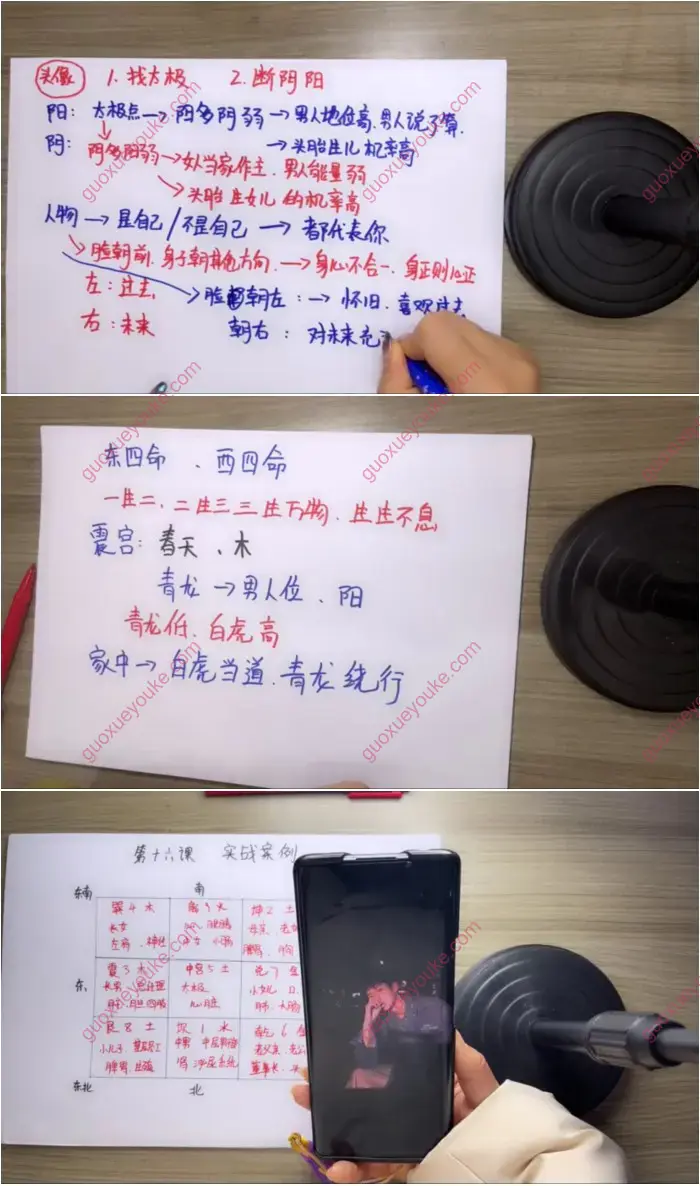 头像 1. 找太极 2. 断阴阳
阳: 太极点→阳多阴弱→男人地位高.男人说了算.
→头胎生儿机率高
阴: 阴多阳弱→女人当家作主.男人能量弱
→头胎生女儿的机率高
人物→是自己/不是自己→都代表你
脸朝前.身子朝其他方向.→身心不合一.身正则心正
左:过去 脸朝左:→怀旧.喜欢过去
右:未来 朝右: 对未来充
东四命、西四命
一生二.二生三三生万物.生生不息
震宫:春天、木
青龙→男人位、阳
青龙低.白虎高
家中→白虎当道.青龙绕行
第十六课 实战案例
东南 南
巽4木 离9火 坤2土
长女 中女
左肩
东 震3木 中宫5土 兑7金
长男 太极 小女儿
艮8土 坎1水 乾6金
小儿子 中男 老父亲
脾胃 肾 泌尿系统 董事长
东北 北
guoxueyouke.com
guoxueyouke.com
guoxueyouke.com
guoxueyouke.com
guoxueyouke.com
guoxueyouke.com